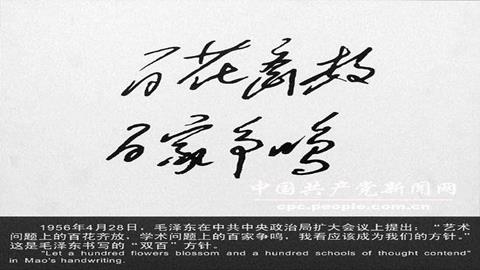 百花齐放
百家争鸣
中国共产党新闻网
cpc.people.com.cn
1956年4月28日，毛泽东在中共中央政治局扩大会议上提出：“艺术
问题上的百花齐放，学术问题上的百家争鸣，我看应该成为我们的方针。”
这是毛泽东书写的“双百”方针。
"Let a hundred flowers blossom and a hundred schools of thought contend"
in Mao's handwriting.